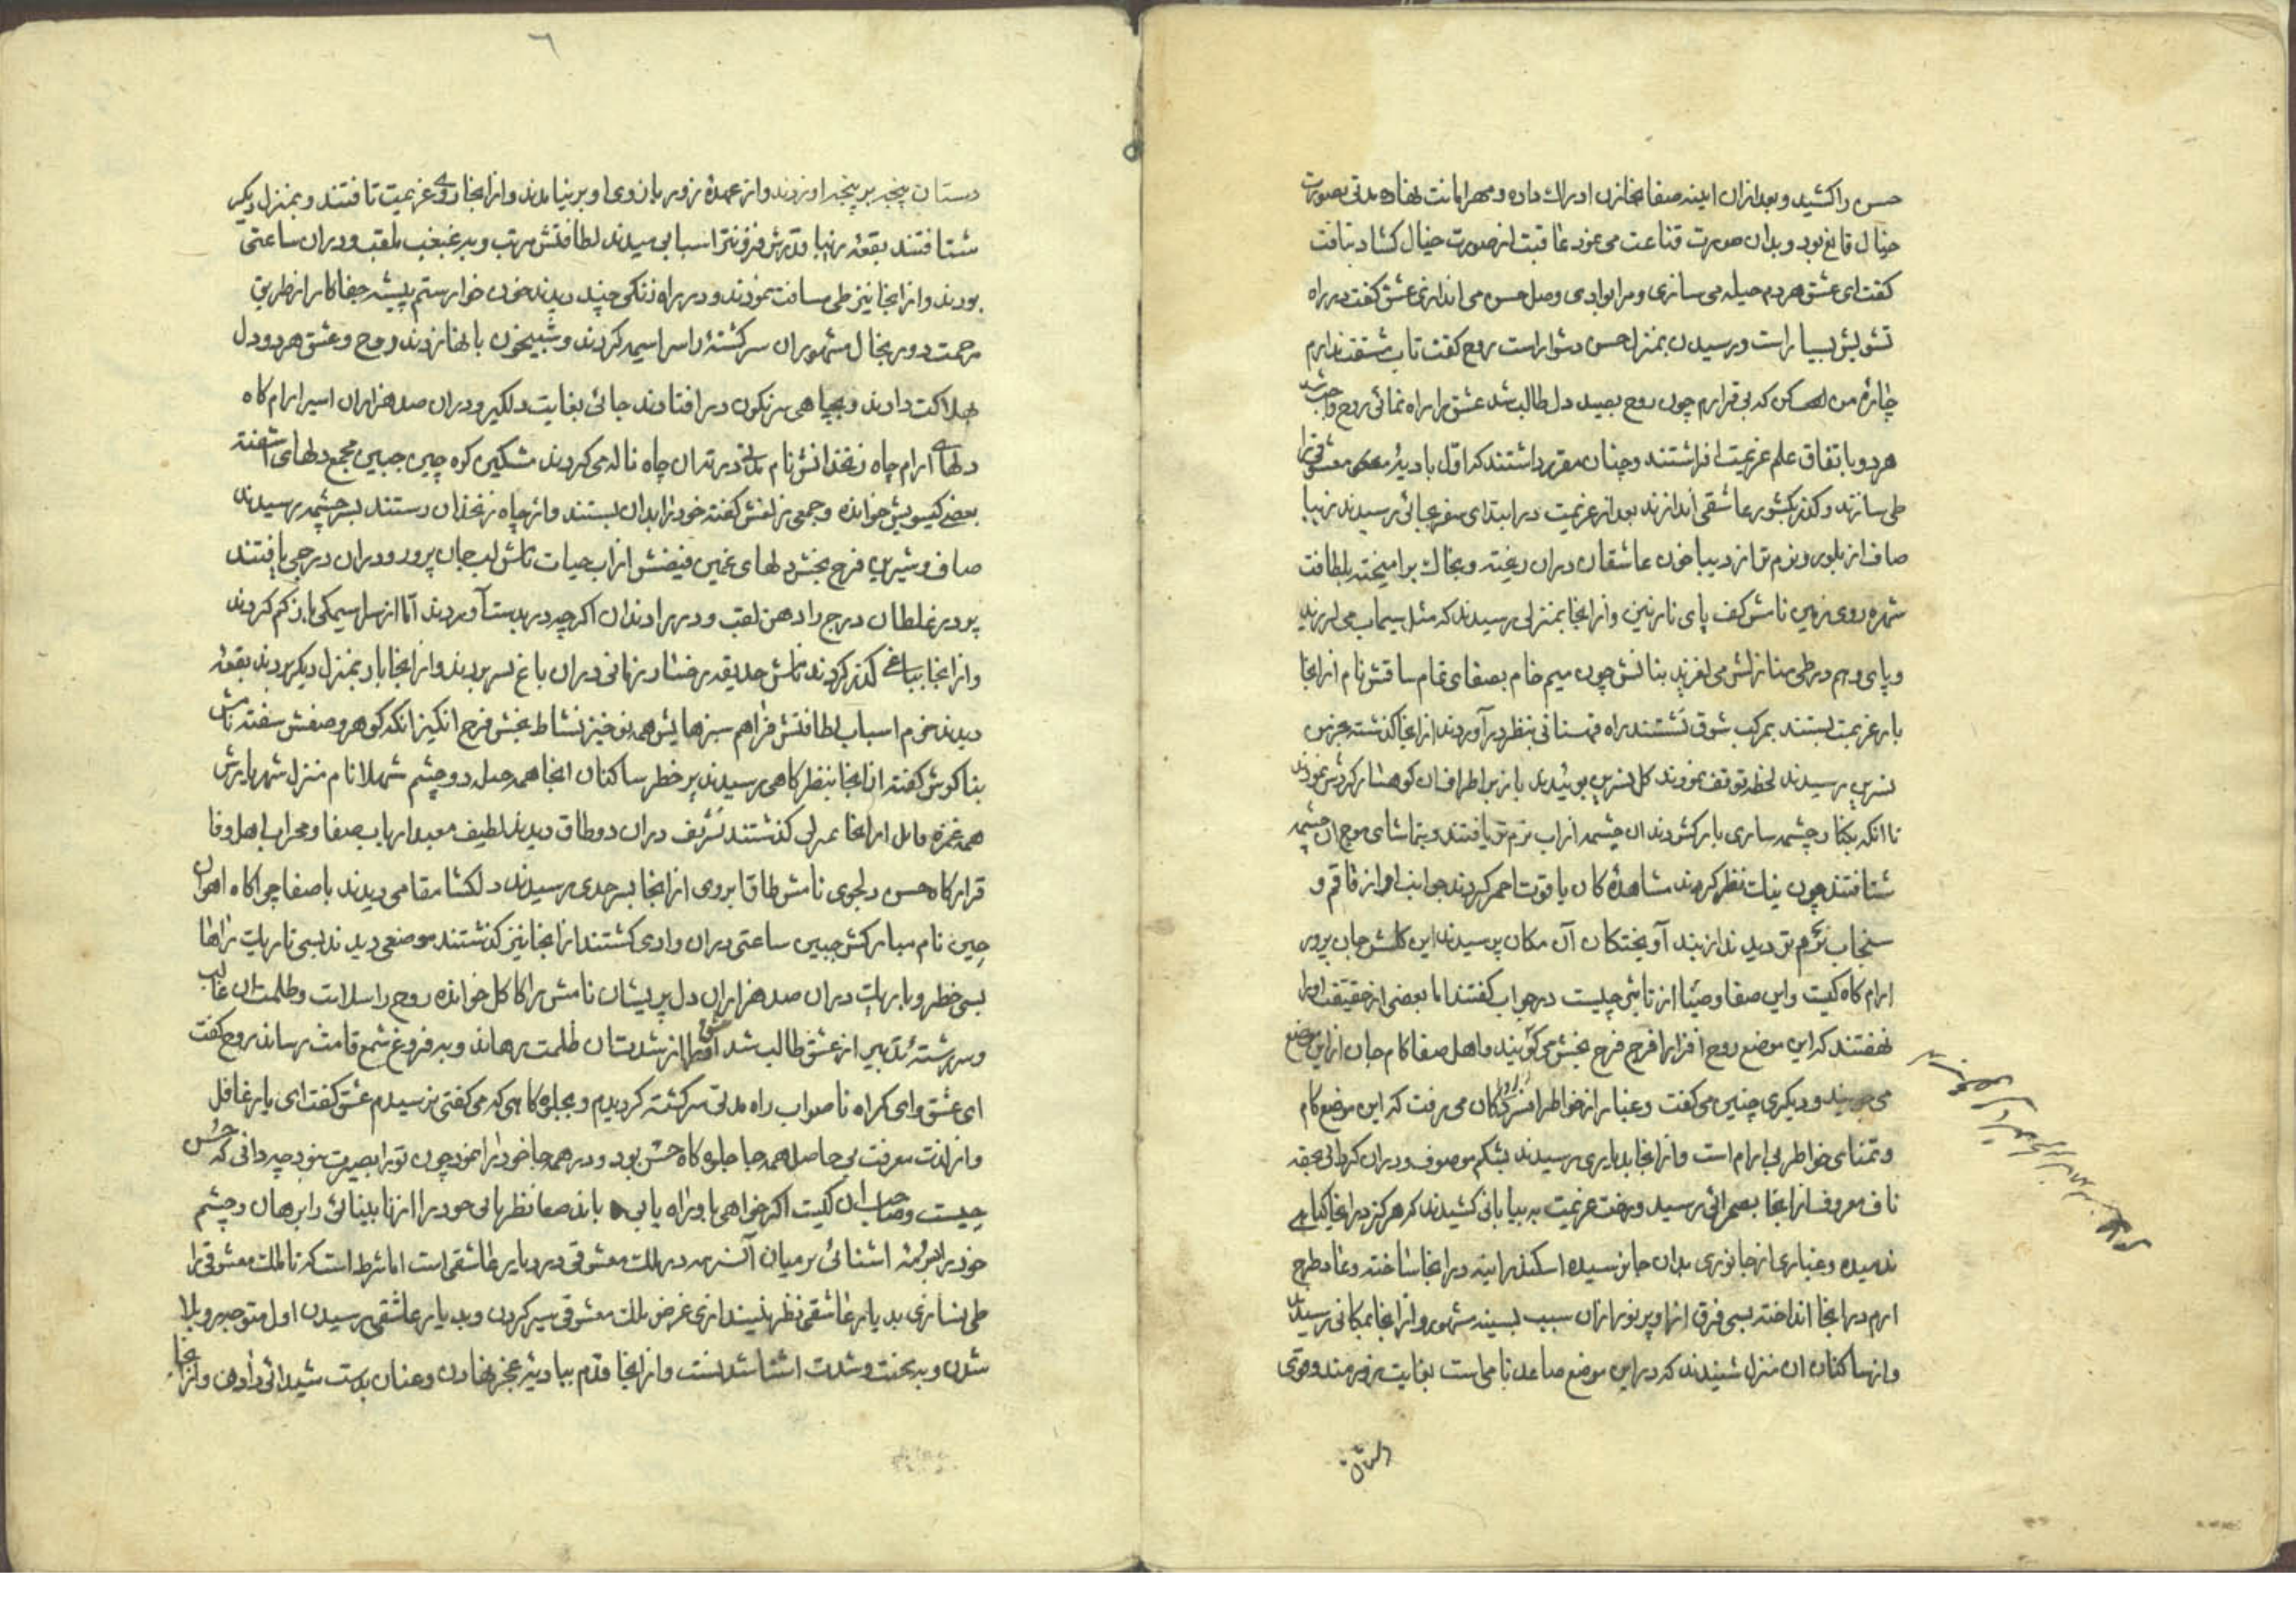 حسن را کشید و بعد ازان اینه صفا بخازن ادراک داده و مهر امانت نهاده مدتی بصورت
خیال قانع بود و بدان صورت قناعت می نمود عاقبت از صورت خیال کشاد نیافت
کفت ای عشق هر دم حیله می سازی و مرا بوادی وصل حسن می اندازی عشق کفت در راه
تشویش بسیار است و رسیدن بمنزل حسن دشوار است روح کفت تاب مشقت ندارم
چارۀ من کن که بی قرارم چون روح بصید دل طالب شد عشق را راه نمائی روح واجب شد
هر دو باتفاق علم عزیمت افراشتند و چنان مقرر داشتند که اول بادیۀ معشوقی را
طی سازند و کذر بکشور عاشقی اندازند بعد از عزیمت در ابتدای سفر بجائی رسیدند زیبا
صاف از بلور و نرم تر از دیبا خون عاشقان دران ریخته و بخاک برامیخته بلطافت
شهره روی زمین نامش کف پای نازنین و از انجا بمنزلی رسیدند که مثل سیماب می لرزید
و پای وهم در طی منازلش می لغزید بنانش چون سیم خام بصفای تمام ساقش نام از انجا
بار عزیمت بستند بمرکب شوق نشستند براه فهستانی بنظر درآوردند از انجا کذشته بخرمن
نسرین رسیدند لحظه توقف نمودند کل نسرین بوئیدند باز بر اطراف ان کوهسار کردش نمودند
تا انکه بکنار چشمه ساری بار کشودند ان چشمه از اب نرم تر یافتند و بتماشای موج ان چشمه
شتافتند چون نظر کردند مشاهدۀ کان یاقوت احمر کردند جوانب او از قاقم و
سنجاب نرم تر دیدند از بند آویختکان آن مکان پرسیدند این کلشن جان پرور
ارام کاه کیست و این صفا و ضیا از تاثیر چیست در جواب کفتند اما بعضی از حقیقت او را
نهفتند که این موضع روح افزا را فرح فرح بخش می کویند و اهل صفا کام جان از این موضع
می جویند و دیکری چنین می کفت و غبار از خواطر افسردکان می رفت که این موضع کام
و تمنای خواطر بی ارام است و از انجا بدیاری رسیدند بشکم موصوف و دران کردابی بحقه
ناف معروف از انجا بصحرائی رسید و رخت عزیمت به بیابانی کشیدند که هرکز در انجا کیاهی
ندمیده و غباری از جانوری بدان جا نرسیده اسکندر اینه در انجا ساخته و عاد طرح
ارم در انجا انداخته بسی فرق از او پر نور ازان سبب بسینه مشهور و از انجا بمکانی رسیدند
و از ساکنان ان منزل شنیدند که در این موضع صاعد نامی است بغایت زورمند و قوی
دستان پنجه بر پنجه او زدند و از عهدۀ زور بازوی او بر نیامدند و از انجا روی عزیمت تافتند و بمنزل دیکر
شتافتند بقعۀ زیبا قدرش فزونتر اسبابی میدند لطافتش مرتب و به غبغب ملقب و دران ساعتی
بودند و از انجا نیز طی مسافت نمودند و در راه زنکی چند دیدند خون خوار ستم پیشه جفا کار از طریق
مرحمت دور بخال مشهور ان سرکشته را سراسیمه کردند و شبیخون باانها زدند روح و عشق هر دو دل
بهلاکت دادند و بچاهی سرنکون در افتادند جائی بغایت دلکیر و دران صد هزاران اسیر ارام کاه
دلهای ارام چاه زنخدانش نام مدتی در ته ان چاه ناله می کردند مشکین کره چین جبین مجمع دلهای اشفته
بعضی کیسویش خوانده و جمعی زلفش کفته خود را بدان بستند و از چاه زنخدان رستند بسرچشمه رسیدند
صاف و شیرین فرح بخش دلهای غمین فیضش از اب حیات نامش لب جان پرور و دران درجی یافتند
پر در غلطان درج را دهن لقب و در را دندان اکرچه در بدست آوردند اما از سراسیمکی باز کم کردند
و از انجا بباغی کذر کردند نامش حدیقه رخسار زمانی دران باغ بسر بردند و از انجا بار بمنزل دیکر بردند بقعۀ
دیدند خرم اسباب لطافتش فراهم سبزهایش همه نوخیز نشاط بخش فرح انکیز انکه کوهر وصفش سفته نامش
بناکوش کفته از انجا بنظرکاهی رسیدند پر خطر ساکنان انجا همه دو چشم شهلا نام منزل شهریارش
همه غمزه از انجا کذشتند دران دو طاق دیدند لطیف معبد ارباب صفا و محراب اهل وفا
قرارکاه حسن دلجوی نامش طاق ابروی از انجا بسرحدی رسیدند دلکشا مقامی دیدند با صفا چراکاه اهوان
چین نام مبارکش جبین ساعتی دران وادی کشتند از انجا نیز کذشتند موضعی دیدند بسی تاریک راهها
بسی خطر و باریک دران صد هزاران دل پریشان نامش را کاکل خوانده روح را سلامت و ظلمت ان غالب
و سر رشتۀ تدبیر از عشق طالب شد از شبستان ظلمت رهاند و به فروغ شمع قامت رساند روح کفت
ای عشق و ای کمراه ناصواب راه مدتی سرکشته کردیدم و بجلوه کاهی که می کفتی نرسیدم عشق کفت ای یار غافل
و از لذت معرفت بی حاصل همه جا جلوه کاه حسن بود و در همه جا خود را نمود چون تو را بصیرت نبود چه دانی که حسن
چیست و صاحب ان کیست اکر خواهی باو راه یابی خود را از نابینائی وارهان و چشم
خود را اشنائی در میان آر که در ملک معشوقی در دیار عاشقی است اما شرط است که تا ملک معشوقی را
طی نسازی بدیار عاشقی نظر نیندازی غرض ملک معشوقی سیر کردن و بدیار عاشقی رسیدن اول متوجه بلا
شدن و به محنت و شدت اشنا شدنست و از انجا قدم ببادیۀ عجز نهادن و عنان بدست شیدائی دادن و از انجا